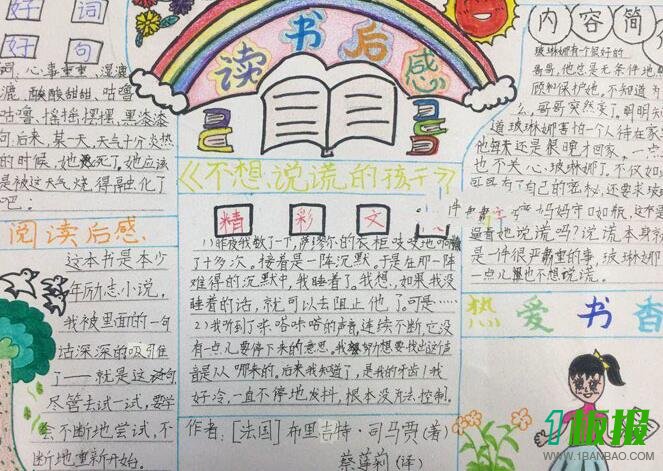 好 词
好 句
词、心事重重、湿漉
漉、酸酸甜甜、咕噜
咕噜、摇摇摆摆、黑漆漆
句:后来,某一天,天气十分炎热
的时候,她死了。她应该
是被这天气烧得融化了
吧!
读书后感
内容简
玻琳娜有个很好的
哥哥,他总是无条件地
顾和保护她,不知道为
么,哥哥突然变了,明明知
道玻琳娜害怕一个人待在家
他每天还是很晚才回家。一点
也不关心玻琳娜了。不仅如
可恶有了自己的密秘,还要求玻
妈妈守口如瓶,这不
逼着她说谎吗?说谎本身就
是一件很严肃的事,玻琳娜
一点儿也不想说谎。
《不想说谎的孩子》
精 彩 文
1)昨夜我数了一下,萨缪尔的衣柜吱吱地响
了十多次。接着是一阵沉默。于是在那一阵
难得的沉默中,我睡着了。我想,如果我没
睡着的话,就可以去阻止他了。可是……
2)我听到了咔嗒咔嗒的声音,连续不断,它没
有一点儿要停下来的意思。我努力想要找出这声
音是从哪来的,后来我知道了,是我的牙齿!我
好冷,一直不停地发抖,根本没方法控制。
作者:[法国]布里吉特·司马贾(著)
蔡莲莉(译)
阅读后感
这本书是本少
年励志小说,
我被里面的一句
话深深的吸引住
了——就是这句
尽管去试一试,
会不断地尝试,不
断地重新开始。
热爱书香
1板报
WWW.1BANBAO.COM